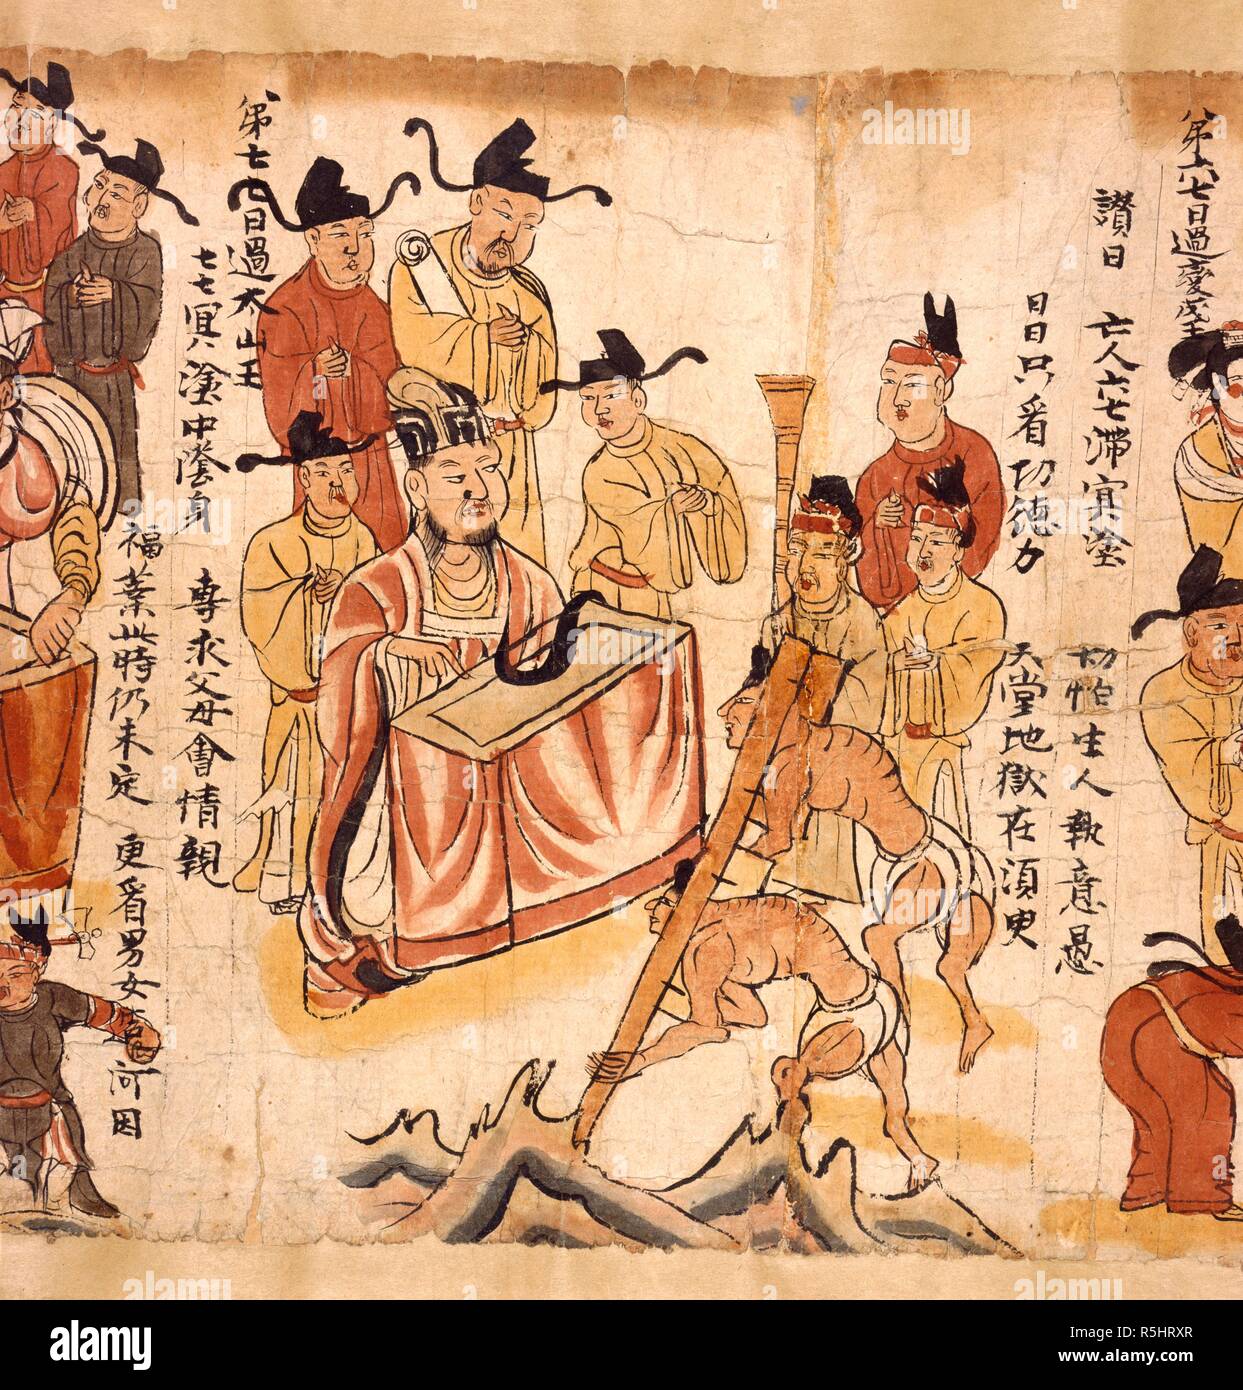 第六七日過變成王
讚曰 亡人六七滯冥塗 切怕生人執意愚
日日只看功德力 天堂地獄在須臾
第七七日過太山王
七七冥塗中陰身 專求父母會情親
福業此時仍未定 更看男女造何因
alamy
Image ID: R5HRXR
www.alamy.com